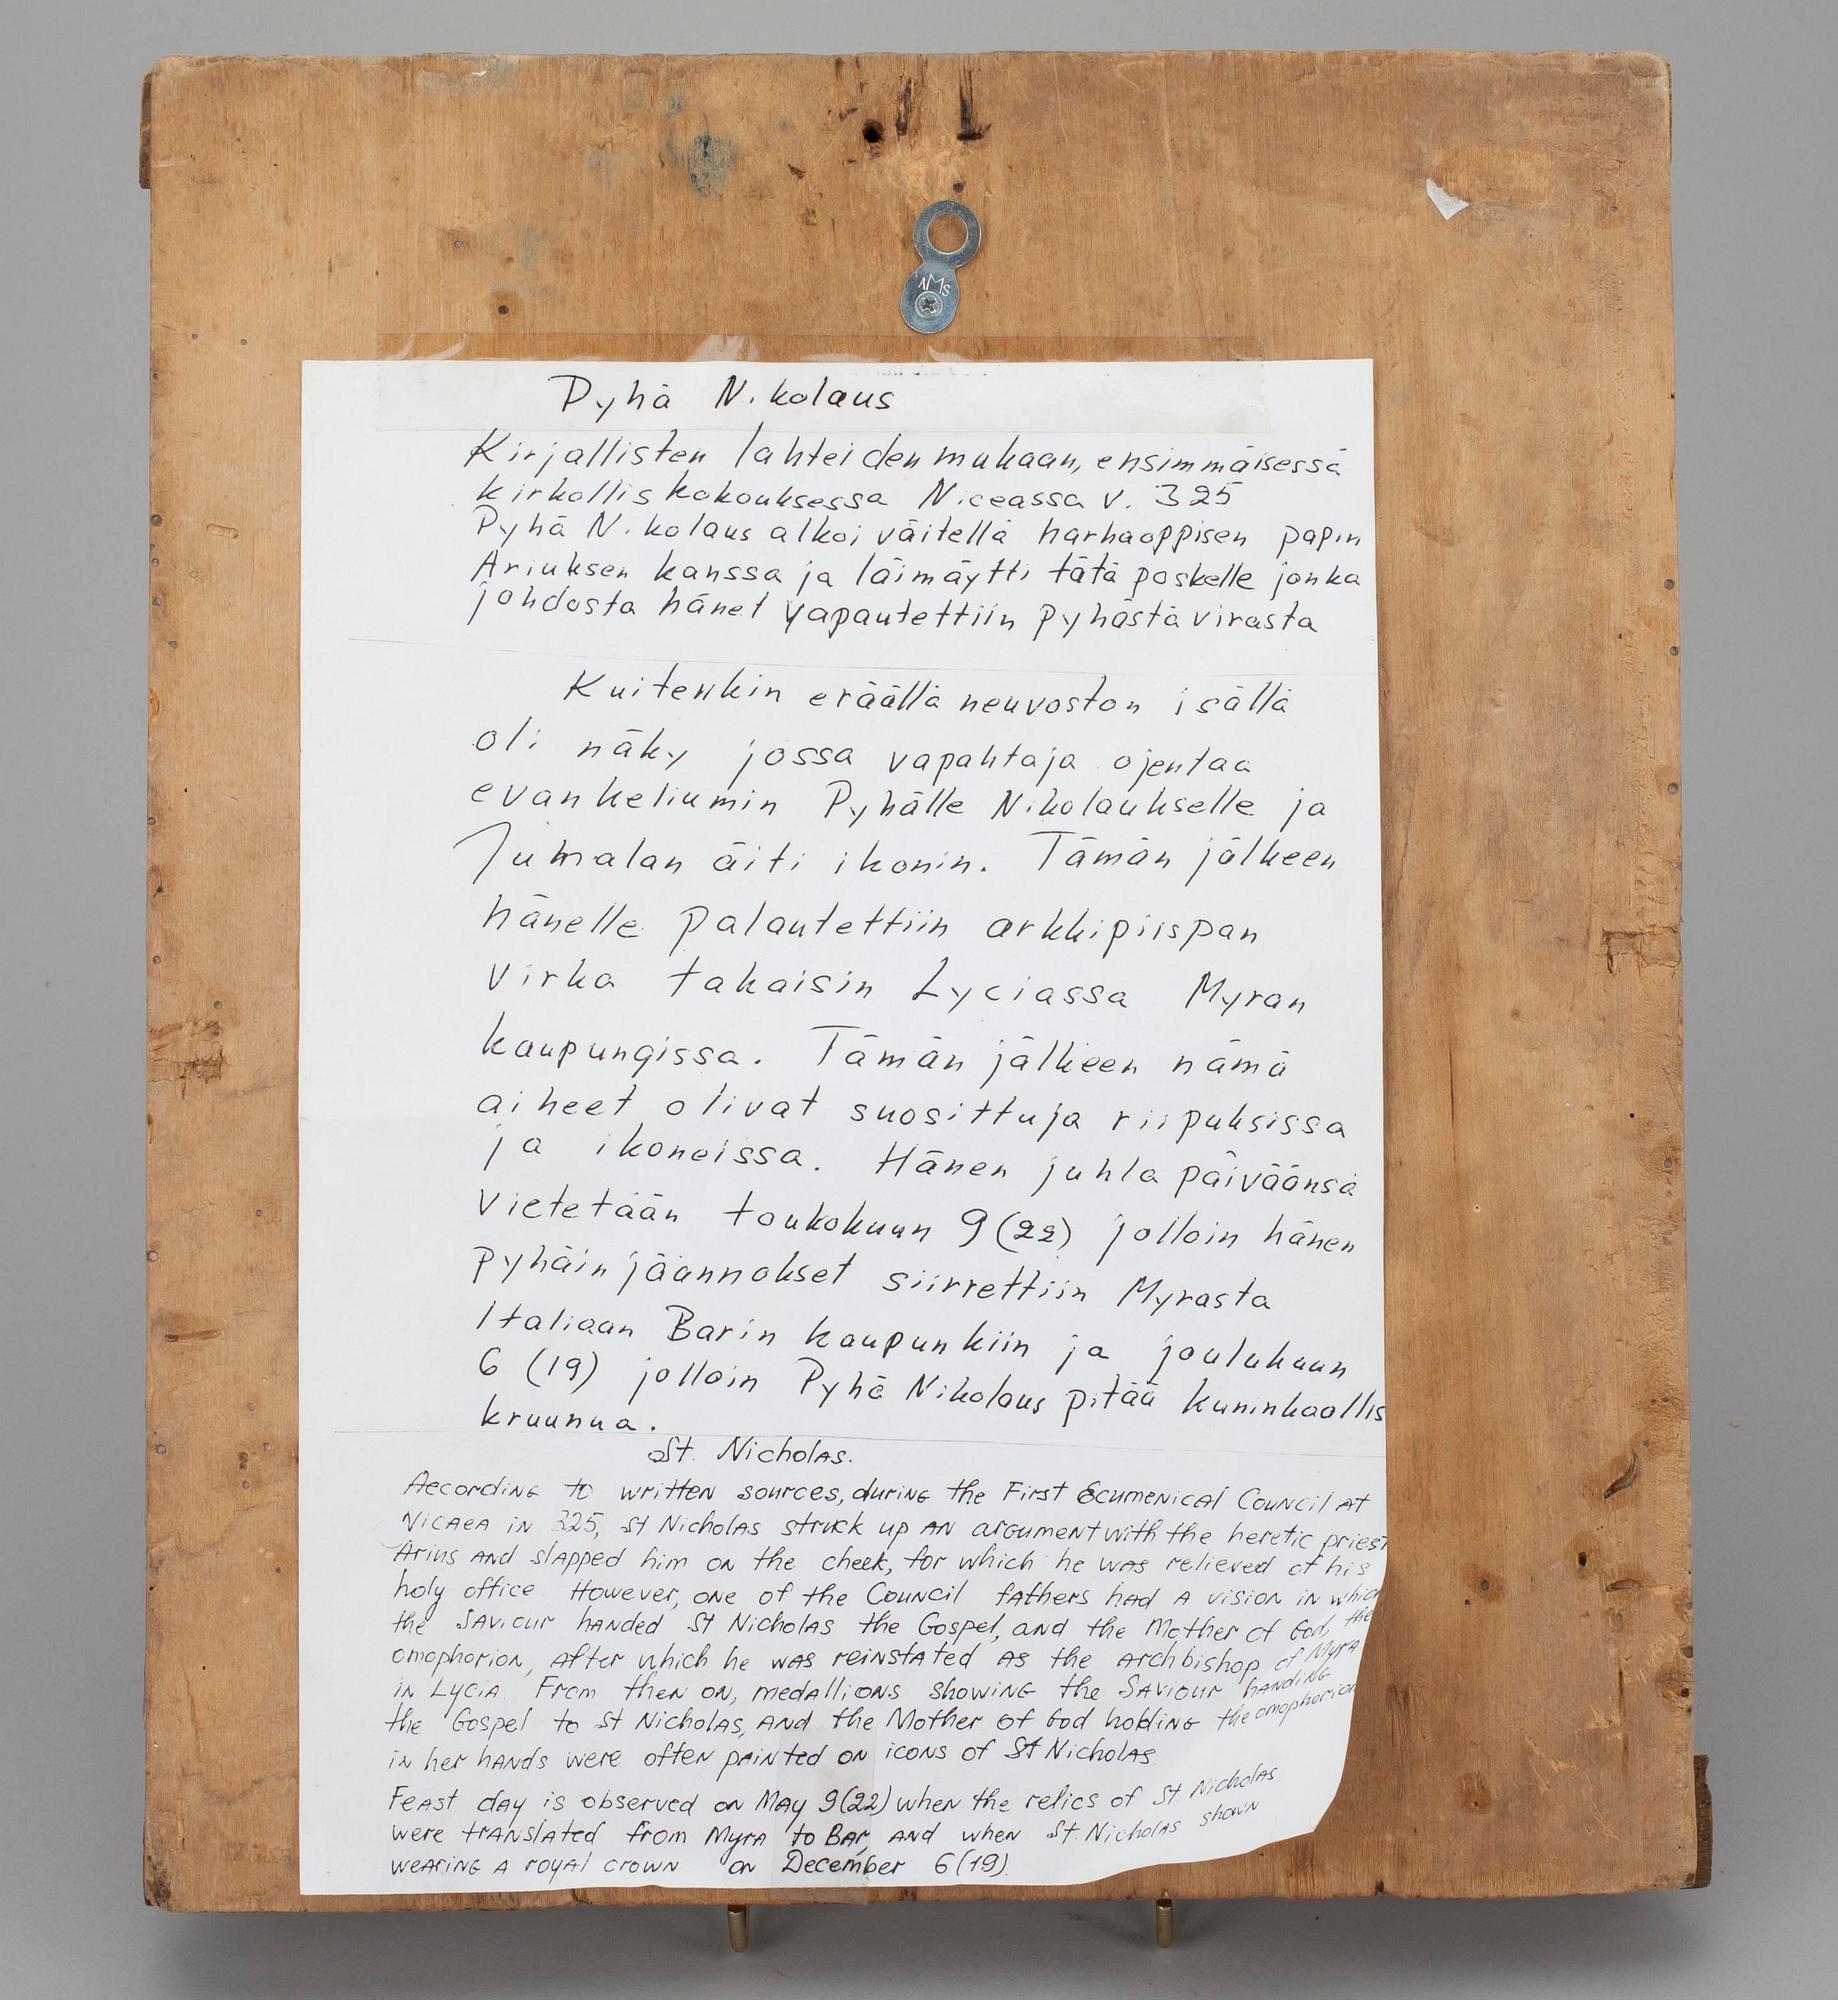 AMS
Pyhä Nikolaus
Kirjallisten lahteiden mukaan, ensimmäisessä
kirkollis kokouksessa Niceassa v. 325
Pyhä Nikolaus alkoi väitellä harhaoppisen papin
Ariuksen kanssa ja läimäytti tätä poskelle jonka
johdosta hänet vapautettiin pyhästä virasta
Kuitenkin eräällä neuvoston isällä
oli näky jossa vapahtaja ojentaa
evankeliumin Pyhälle Nikolaukselle ja
Jumalan äiti ikonin. Tämän jälkeen
hänelle palautettiin arkkipiispan
virka takaisin Lyciassa Myran
kaupungissa. Tämän jälkeen nämä
aiheet olivat suosittuja riipuksissa
ja ikoneissa. Hänen juhla päiväänsä
vietetään toukokuun 9 (22) jolloin hänen
pyhäin jäännokset siirrettiin Myrasta
Italiaan Barin kaupunkiin ja joulukuun
6 (19) jolloin Pyhä Nikolaus pitää kuninkaallis
kruunua.
St. Nicholas.
According to written sources, during the First Ecumenical Council at
Nicaea in 325, St Nicholas struck up an argument with the heretic priest
Arius and slapped him on the cheek, for which he was relieved of his
holy office. However, one of the Council fathers had a vision in which
the Saviour handed St Nicholas the Gospel, and the Mother of God, the
omophorion, after which he was reinstated as the archbishop of Myra
in Lycia. From then on, medallions showing the Saviour handing
the Gospel to St Nicholas, and the Mother of God holding the omophorion
in her hands were often painted on icons of St Nicholas
Feast day is observed on May 9(22) when the relics of St Nicholas
were translated from Myra to Bar, and when St. Nicholas shown
wearing a royal crown on December 6(19).